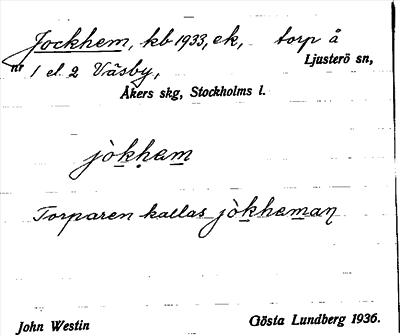 Jockhem, kb 1933, ek, torp å
Ljusterö sn,
nr 1 el. 2 Väsby,
Åkers skg, Stockholms l.
jòk̠ḥam̠
Torparen kallas jòk̠ham̠aƞ
John Westin
Gösta Lundberg 1936.